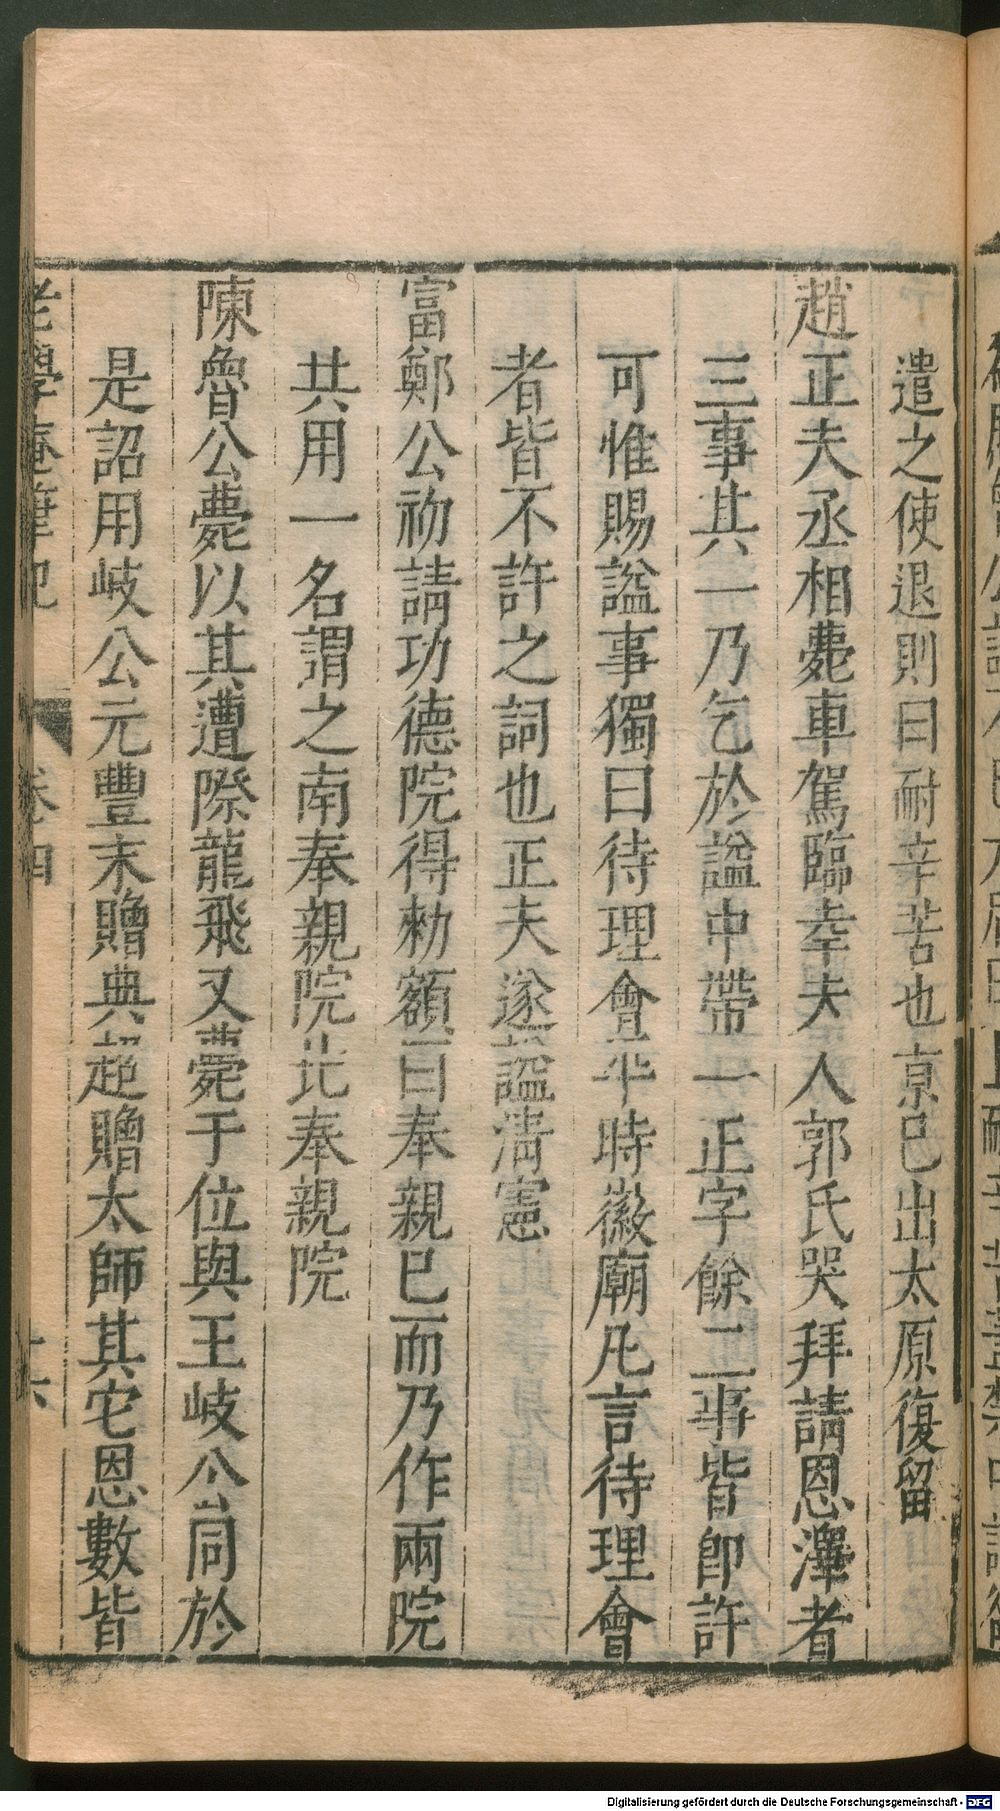 遣之使退則曰耐辛苦也京已出太原復留
趙正夫丞相薨車駕臨幸夫人郭氏哭拜請恩澤者
三事其一乃乞於謚中帶一正字餘二事皆卽許
可惟賜謚事獨曰待理會平時徽廟凡言待理會
者皆不許之詞也正夫遂謚清憲
富鄭公初請功德院得勑額曰奉親已而乃作兩院
共用一名謂之南奉親院北奉親院
陳魯公薨以其遭際龍飛又薨于位與王岐公同於
是詔用岐公元豐末贈典超贈太師其它恩數皆
老學庵筆記 卷四
Digitalisierung gefördert durch die Deutsche Forschungsgemeinschaft - DFG